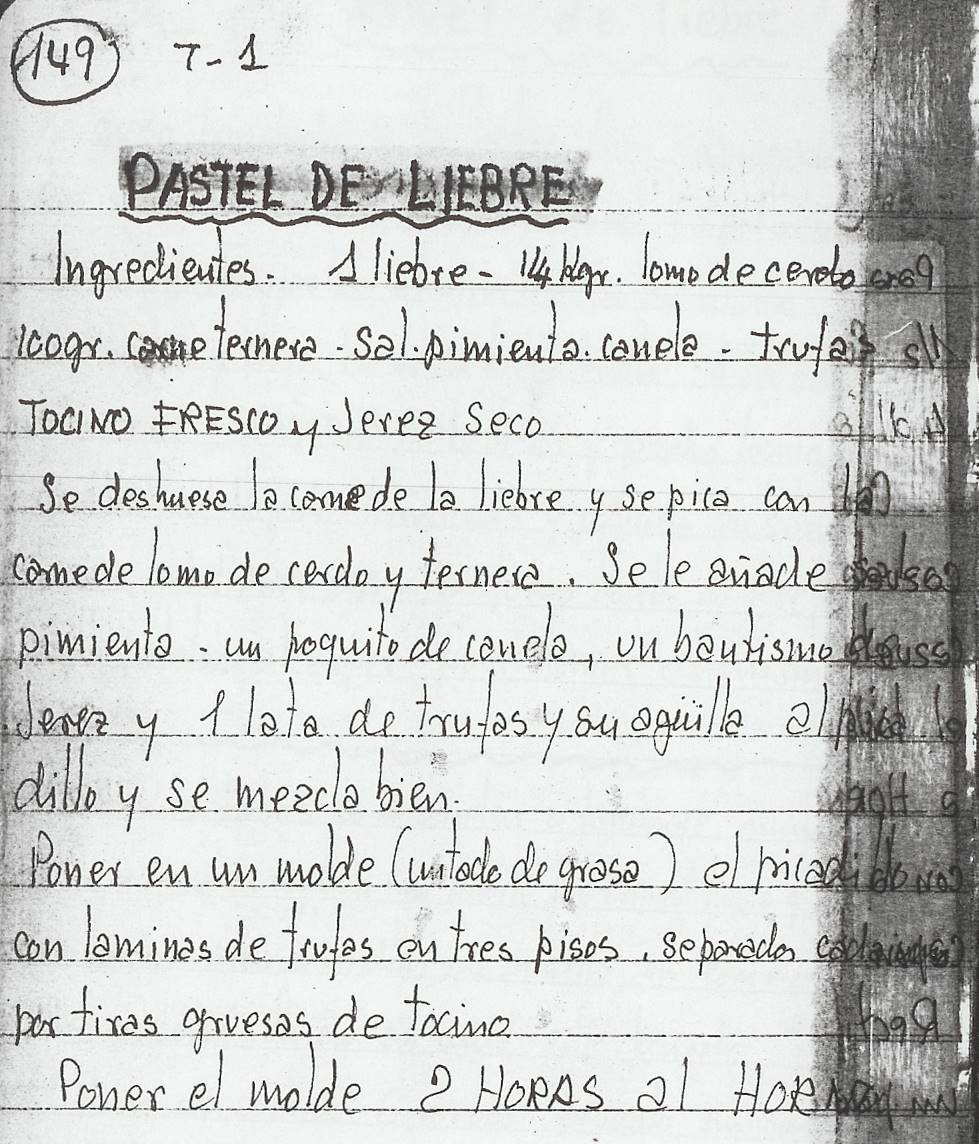 149 T-1
PASTEL DE LIEBRE
Ingredientes. 1 liebre - 1/4 kgr. lomo de cerdo
100gr. carne ternera - Sal. pimienta. canela - trufas
TOCINO FRESCO y Jerez Seco
Se deshuesa la carne de la liebre y se pica con la
carne de lomo de cerdo y ternera. Se le añade
pimienta - un poquito de canela, un bautismo de
Jerez y 1 lata de trufas y su agüilla al pica
dillo y se mezcla bien.
Poner en un molde (untado de grasa) el picadillo
con laminas de trufas en tres pisos, separados
por tiras gruesas de tocino
Poner el molde 2 HORAS al HORNO